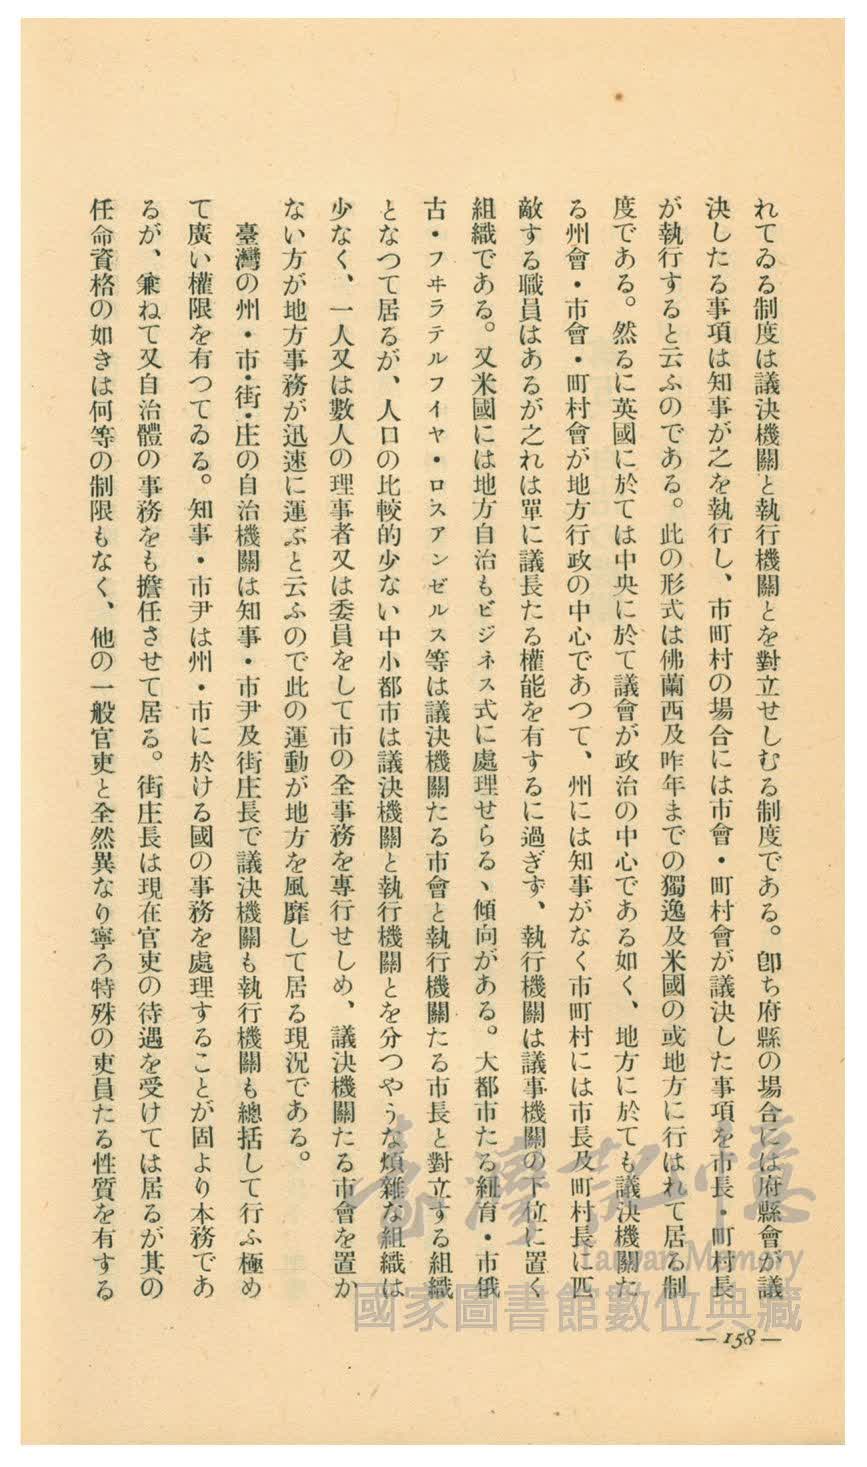 れてゐる制度は議決機關と執行機關とを對立せしむる制度である。卽ち府縣の場合には府縣會が議
決したる事項は知事が之を執行し、市町村の場合には市會・町村會が議決した事項を市長・町村長
が執行すると云ふのである。此の形式は佛蘭西及昨年までの獨逸及米國の或地方に行はれて居る制
度である。然るに英國に於ては中央に於て議會が政治の中心である如く、地方に於ても議決機關た
る州會・市會・町村會が地方行政の中心であつて、州には知事がなく市町村には市長及町村長に匹
敵する職員はあるが之れは單に議長たる權能を有するに過ぎず、執行機關は議事機關の下位に置く
組織である。又米國には地方自治もビジネス式に處理せらるゝ傾向がある。大都市たる紐育・市俄
古・フヰラテルフイヤ・ロスアンゼルス等は議決機關たる市會と執行機關たる市長と對立する組織
となつて居るが、人口の比較的少ない中小都市は議決機關と執行機關とを分つやうな煩雜な組織は
少なく、一人又は數人の理事者又は委員をして市の全事務を專行せしめ、議決機關たる市會を置か
ない方が地方事務が迅速に運ぶと云ふので此の運動が地方を風靡して居る現況である。
臺灣の州・市・街・庄の自治機關は知事・市尹及街庄長で議決機關も執行機關も總括して行ふ極め
て廣い權限を有つてゐる。知事・市尹は州・市に於ける國の事務を處理することが固より本務であ
るが、兼ねて又自治體の事務をも擔任させて居る。街庄長は現在官吏の待遇を受けては居るが其の
任命資格の如きは何等の制限もなく、他の一般官吏と全然異なり寧ろ特殊の吏員たる性質を有する
— 158 —
臺灣記憶
Taiwan Memory
國家圖書館數位典藏